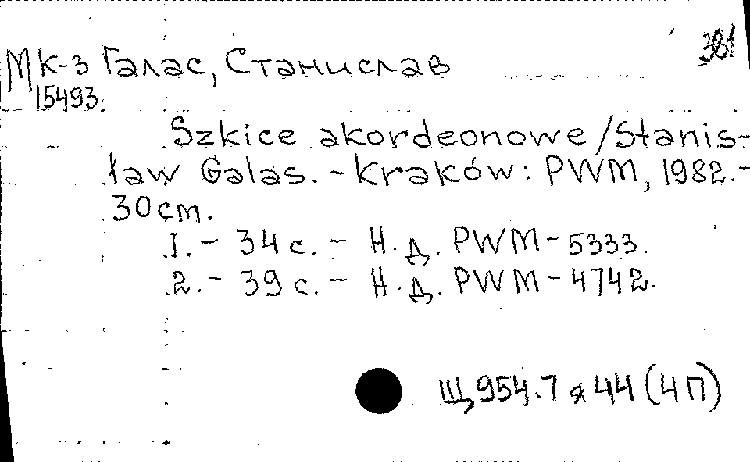 381
Мк-з Галас, Станислав
15493.
Szkice akordeonowe/Stanis-
ław Galas. - Kraków: PWM, 1982. -
30 cm.
I. - 34 с. - Н. д. PWM - 5333.
2. - 39 с. - Н. д. PWM - 4742.
Щ954.7 я 44 (4П)